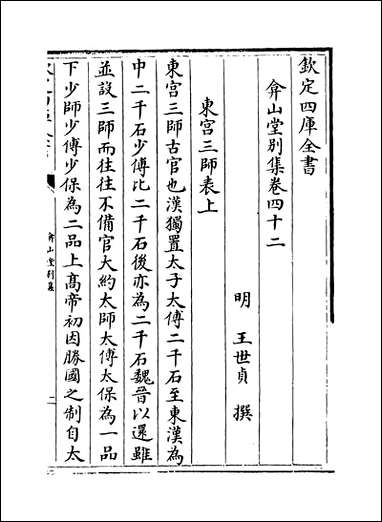 欽定四庫全書
弇山堂別集卷四十二
明 王世貞 撰
東宮三師表上
東宮三師古官也漢獨置太子太傅二千石至東漢為
中二千石少傅比二千石後亦為二千石魏晉以還雖
並設三師而往往不備官大約太師太傅太保為一品
下少師少傅少保為二品上髙帝初因勝國之制自太
弇山堂別集